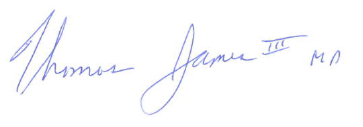 Thomas James III MD